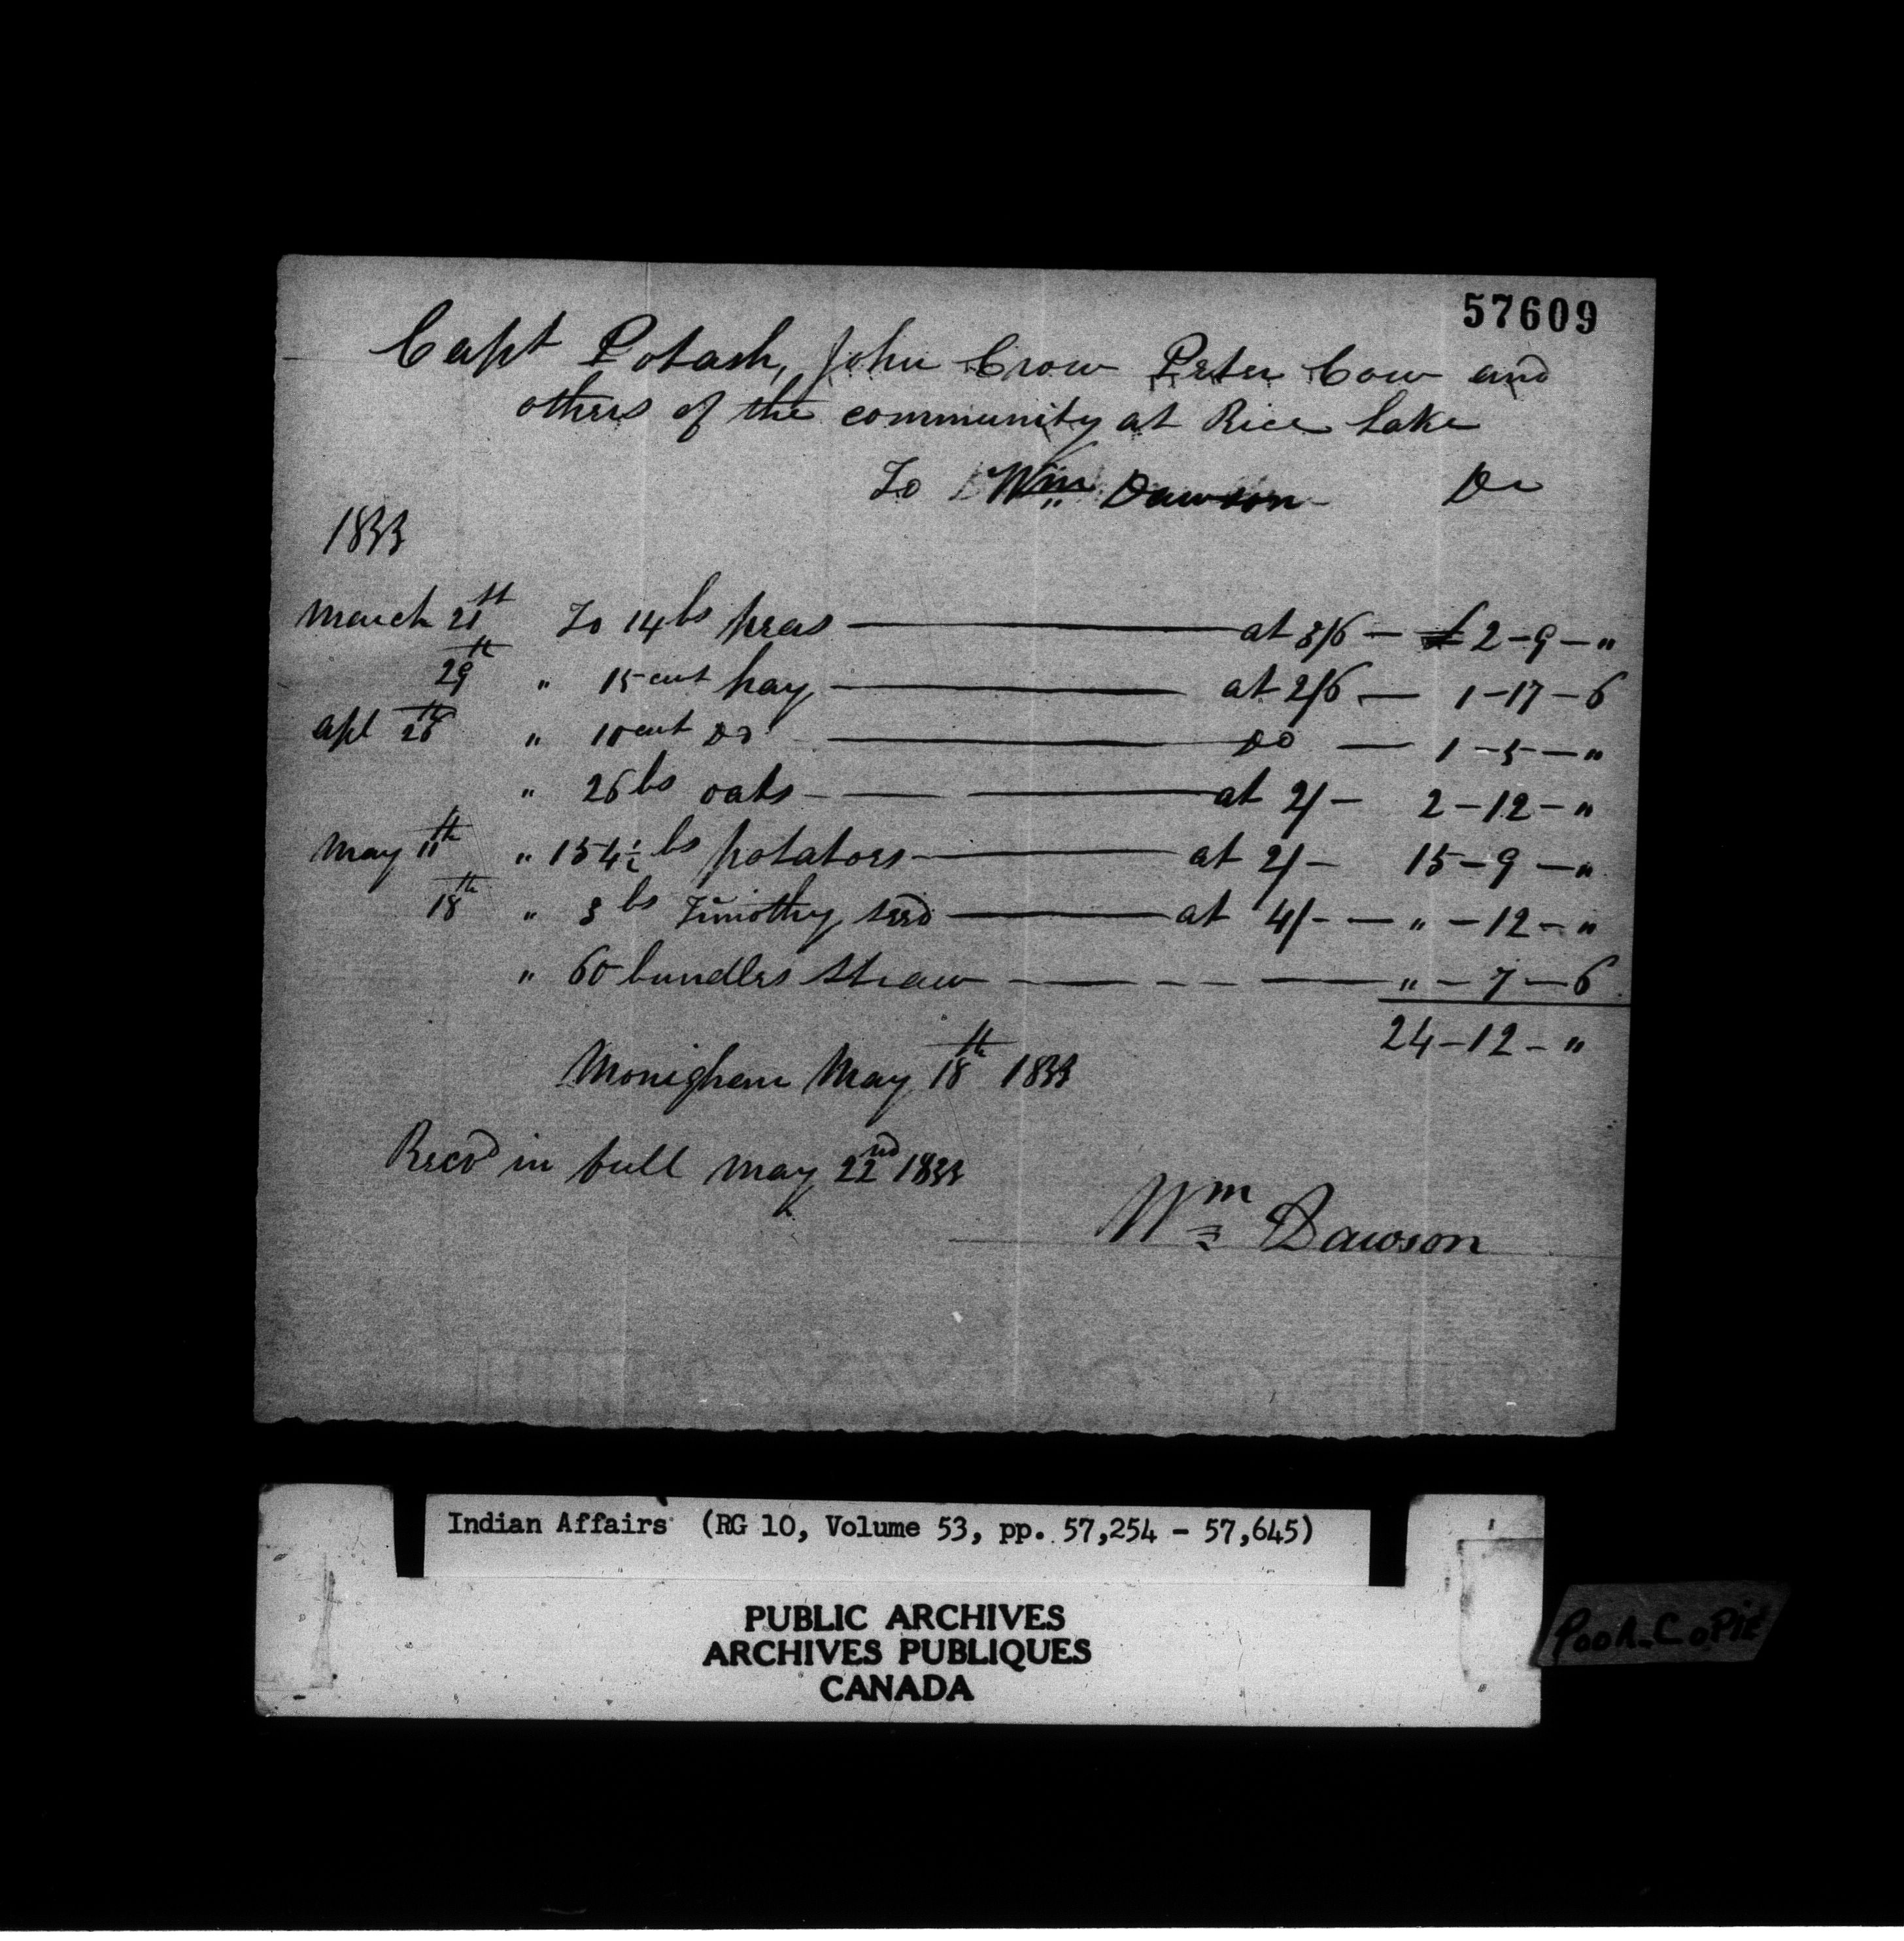 57609
Capt Potash, John Crow Peter Cow and
others of the community at Rice Lake
To Wm Dawson Dr
1833
March 21st To 14 bs peas at 3/6 — £2-9-"
29th " 15 cwt hay at 2/6 — 1-17-6
Apl 26th " 10 cwt Do Do — 1-5-"
" 26 bs oats at 2/- 2-12-"
May 11th " 154½ bs potatoes at 2/- 15-9-"
18th " 3 bs Timothy seed at 4/- — "-12-"
" 60 bundles straw "-7-6
24-12-"
Monighan May 18th 1833
Recd in full May 22nd 1833
Wm Dawson
Indian Affairs (RG 10, Volume 53, pp. 57,254 - 57,645)
PUBLIC ARCHIVES
ARCHIVES PUBLIQUES
CANADA
POOR COPIE